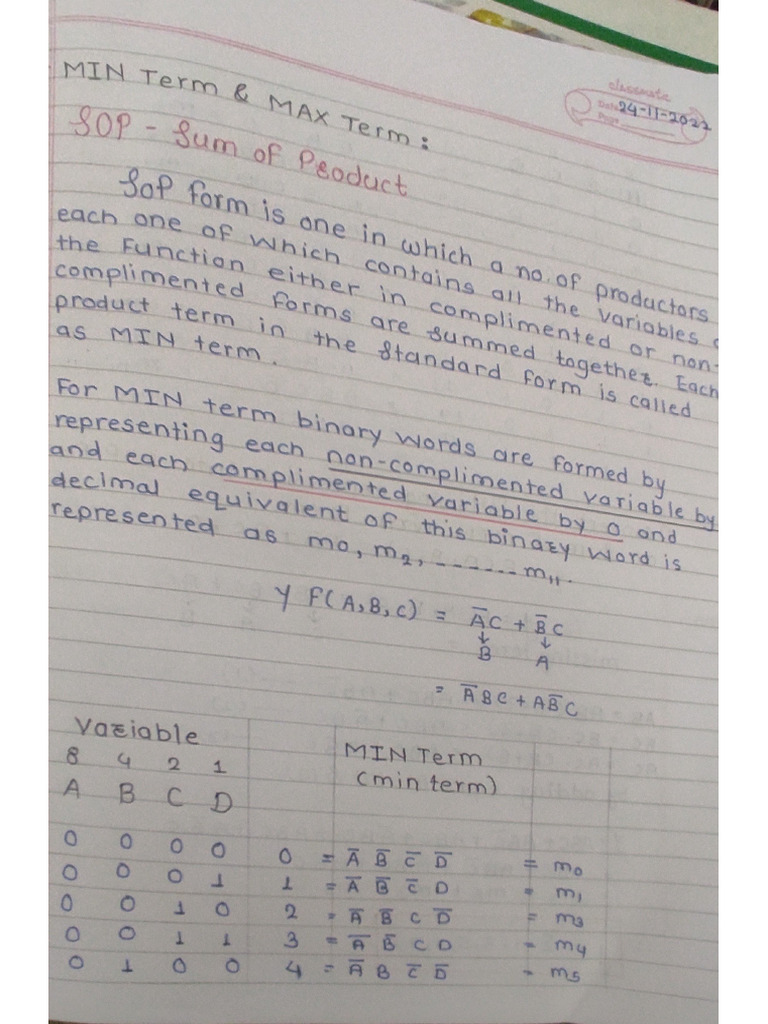 classmate
Date 24-11-2022
Page
MIN Term & MAX Term :
SOP - Sum of Product
SOP form is one in which a no. of productors
each one of which contains all the variables
the Function either in complimented or non-
complimented forms are summed together. Each
product term in the standard form is called
as MIN term.
For MIN term binary words are formed by
representing each non-complimented variable by
and each complimented variable by 0 and
decimal equivalent of this binary word is
represented as m0, m2, ------- m11.
Y F(A,B,C) = A̅C + B̅C
↓ ↓
B A
= A̅BC + AB̅C
Variable MIN Term
8 4 2 1 (min term)
A B C D
0 0 0 0 0 = A̅ B̅ C̅ D̅ = m0
0 0 0 1 1 = A̅ B̅ C̅ D = m1
0 0 1 0 2 = A̅ B̅ C D̅ = m3
0 0 1 1 3 = A̅ B̅ C D = m4
0 1 0 0 4 = A̅ B C̅ D̅ = m5